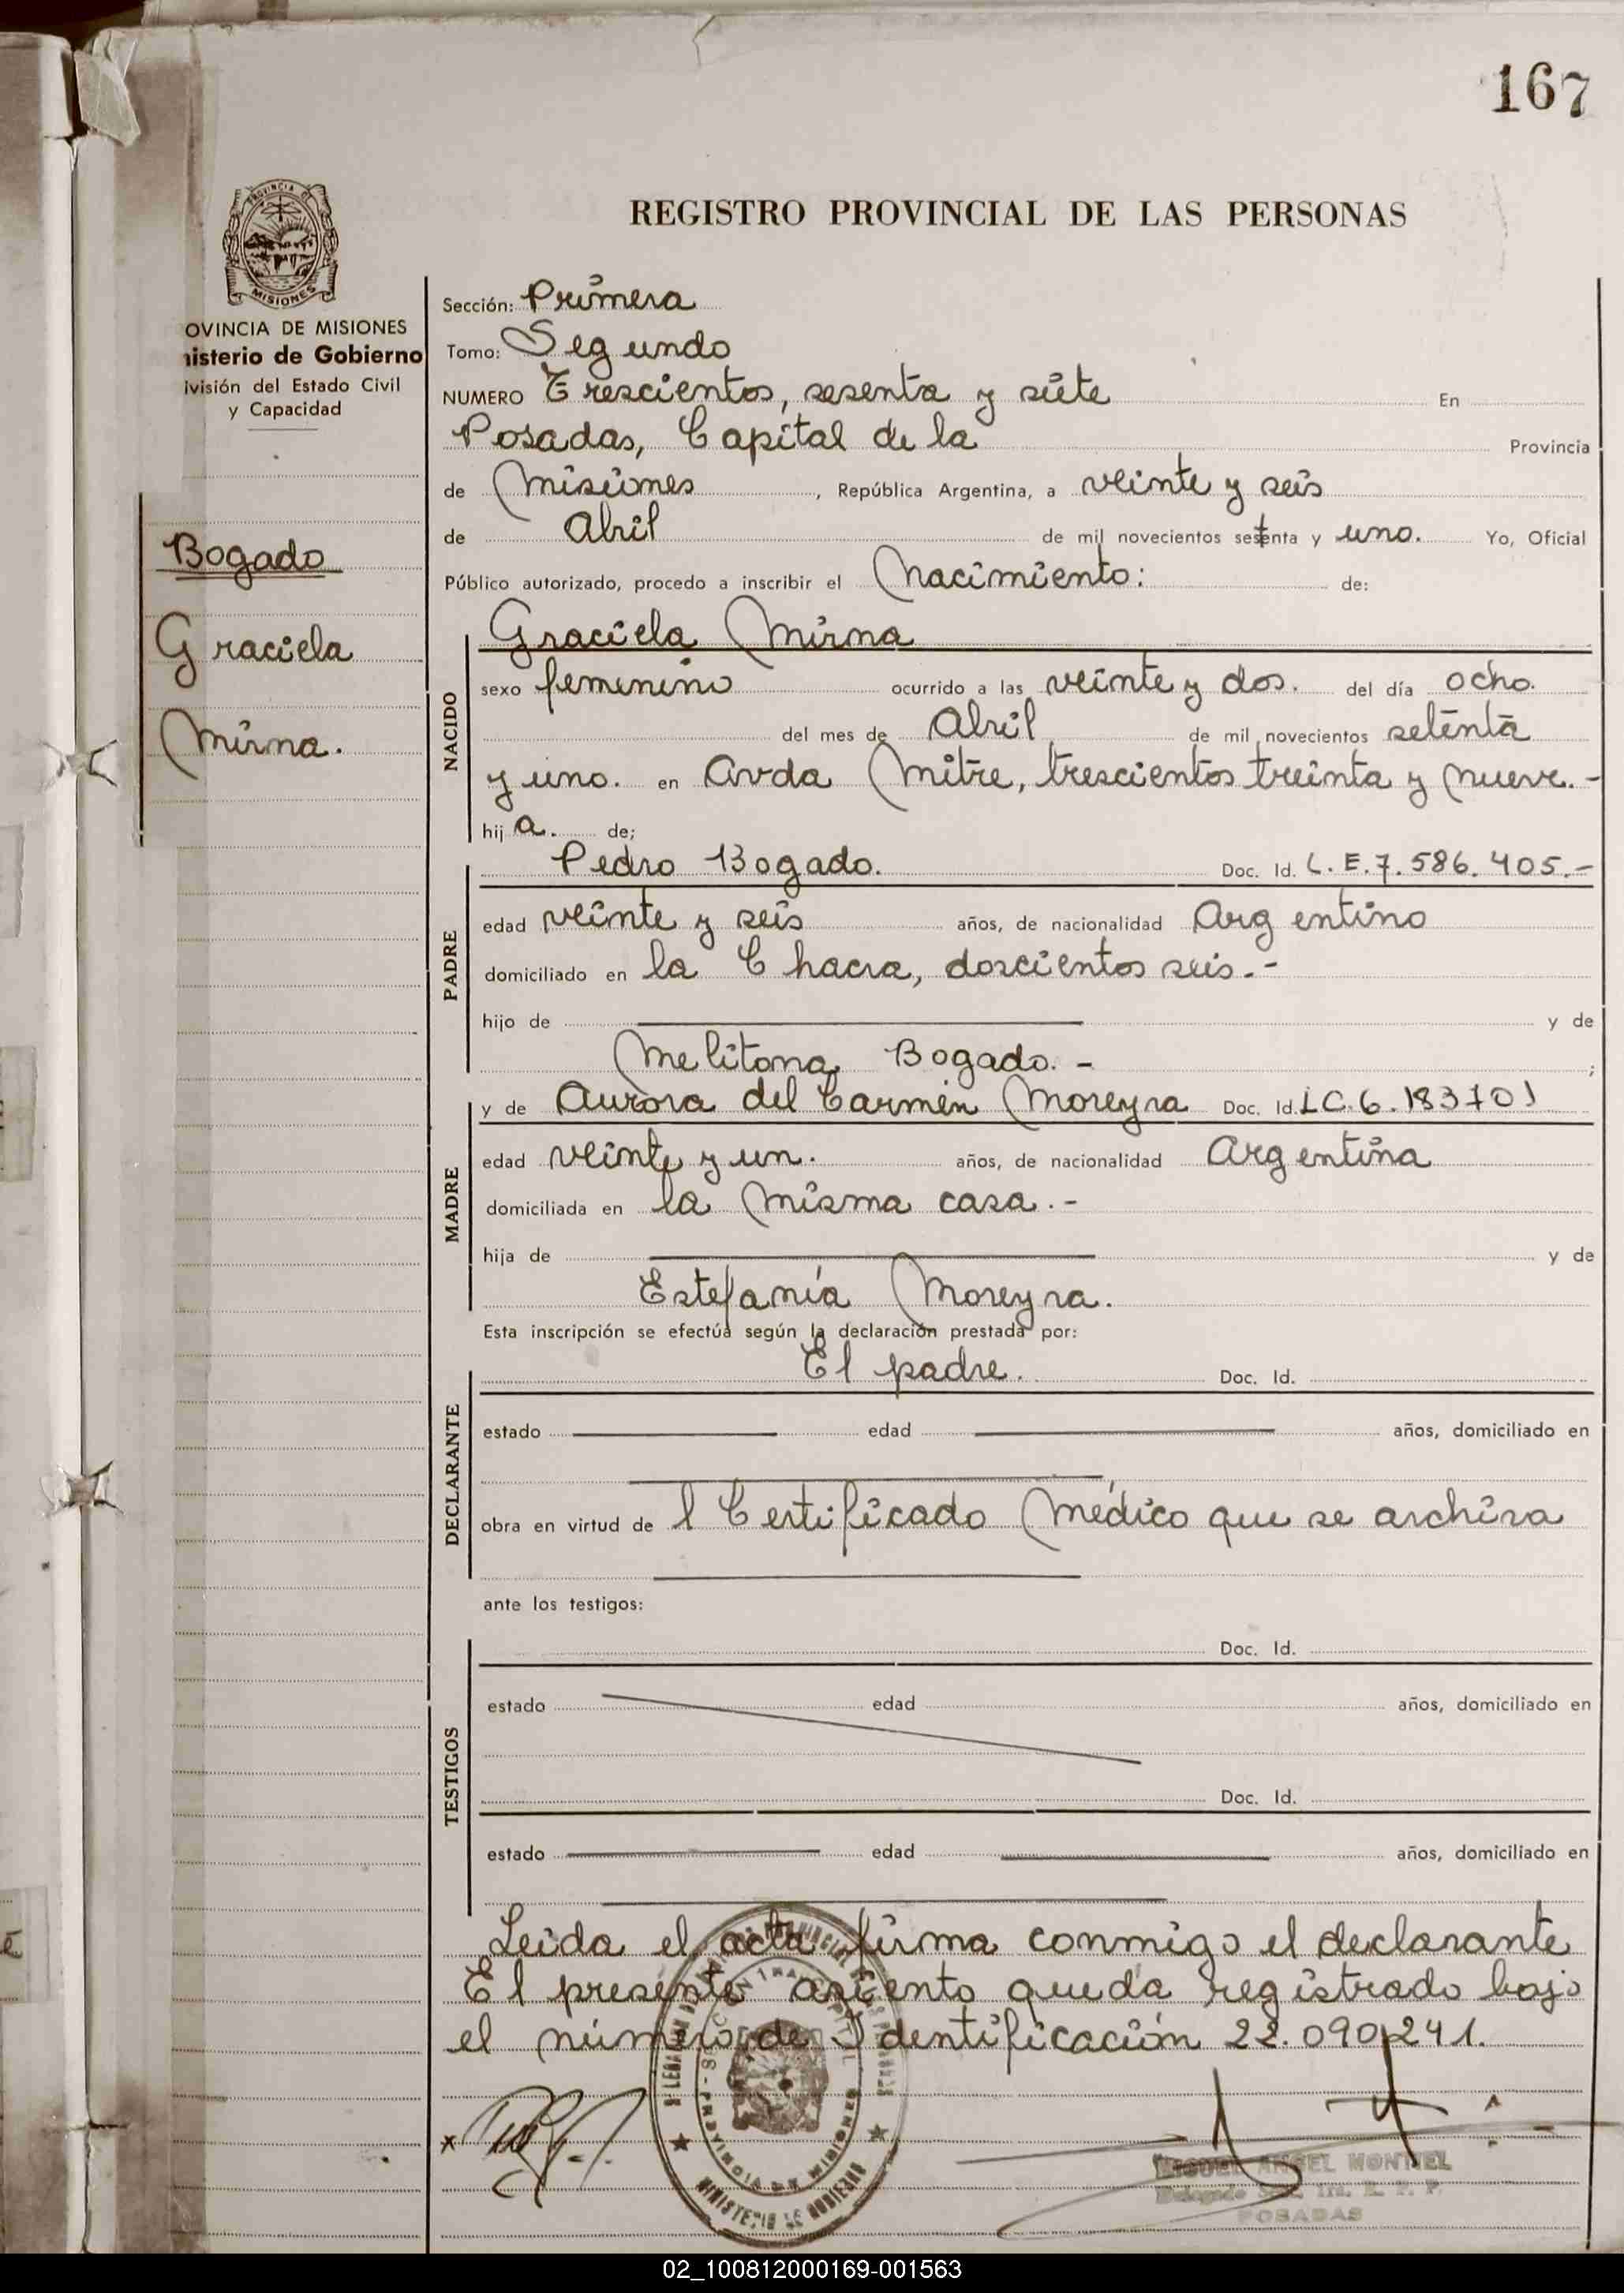 167
REGISTRO PROVINCIAL DE LAS PERSONAS
PROVINCIA DE
MISIONES
OVINCIA DE MISIONES
nisterio de Gobierno
ivisión del Estado Civil
y Capacidad
Bogado
Graciela
Mirna.
Sección: Primera
Tomo: Segundo
NUMERO Trescientos, sesenta y siete En
Posadas, Capital de la Provincia
de Misiones, República Argentina, a veinte y seis
de Abril de mil novecientos setenta y uno. Yo, Oficial
Público autorizado, procedo a inscribir el Nacimiento: de:
NACIDO
Graciela Mirna
sexo femenino ocurrido a las veinte y dos. del día ocho.
del mes de Abril de mil novecientos setenta
y uno. en Avda Mitre, trescientos treinta y nueve.-
hij a. de;
PADRE
Pedro Bogado. Doc. Id. L.E.7.586.405.-
edad veinte y seis años, de nacionalidad Argentino
domiciliado en la Chacra, doscientos seis.-
hijo de y de
Melitona Bogado.- ;
MADRE
y de Aurora del Carmen Moreyra Doc. Id. LC.6.183701
edad veinte y un. años, de nacionalidad Argentina
domiciliada en la misma casa.-
hija de y de
Estefanía Moreyra.
Esta inscripción se efectúa según la declaración prestada por:
DECLARANTE
El padre. Doc. Id.
estado edad años, domiciliado en
obra en virtud de l Certificado Médico que se archiva
ante los testigos:
TESTIGOS
Doc. Id.
estado edad años, domiciliado en
Doc. Id.
estado edad años, domiciliado en
Leida el acta firma conmigo el declarante
El presente asiento queda registrado bajo
el número de Identificación 22.090.241.
PROVINCIA DE MISIONES
MINISTERIO DE GOBIERNO
MIGUEL ANGEL MONTIEL
Delegado Sec. 1ra. R. P. P.
POSADAS
02_100812000169-001563